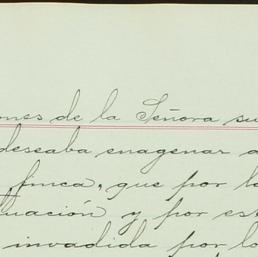 ones de la Señora su
deseaba enagenar a
finca, que por la
tuación y por est
invadida por lo